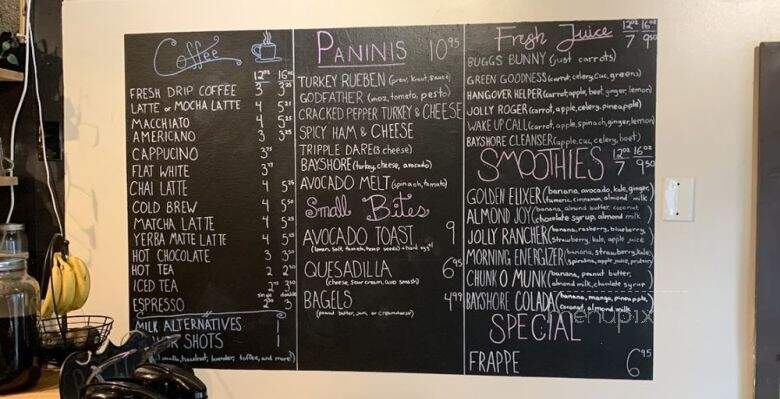 Coffee
12oz 16oz
FRESH DRIP COFFEE 3
LATTE or MOCHA LATTE 4
MACCHIATO 4
AMERICANO 3
CAPPUCINO
FLAT WHITE
CHAI LATTE 4
COLD BREW 4
MATCHA LATTE 4
YERBA MATTE LATTE 4
HOT CHOCOLATE 3
HOT TEA 2
ICED TEA
single double
ESPRESSO 3
MILK ALTERNATIVES 1
SHOTS 1
hazelnut, lavender, toffee, and more!)
PANINIS 10⁹⁵
TURKEY RUEBEN (prov, kraut, sauce)
GODFATHER (moz, tomato, pesto)
CRACKED PEPPER TURKEY & CHEESE
SPICY HAM & CHEESE
TRIPPLE DARE (3 cheese)
BAYSHORE (turkey, cheese, avocado)
AVOCADO MELT (spinach, tomato)
Small Bites
AVOCADO TOAST 9
(lemon, salt, tomato, hemp seeds) + hard egg
QUESADILLA 6⁹⁵
(cheese, sour cream, and smash)
BAGELS 4⁹⁹
(peanut butter, jam, or creamcheese)
Fresh Juice 12oz 16oz
7 9⁵⁰
BUGGS BUNNY (just carrots)
GREEN GOODNESS (carrot, celery, cuc, greens)
HANGOVER HELPER (carrot, apple, beet, ginger, lemon)
JOLLY ROGER (carrot, apple, celery, pineapple)
WAKE UP CALL (carrot, apple, spinach, ginger, lemon)
BAYSHORE CLEANSER (apple, cuc, celery, beet)
SMOOTHIES 12oz 16oz
7 9⁵⁰
GOLDEN ELIXER (banana, avocado, kale, ginger,
tumeric, cinnamon, almond milk
ALMOND JOY (banana, almond butter, coconut,
chocolate syrup, almond milk
JOLLY RANCHER (banana, rasberry, blueberry,
strawberry, kale, apple juice
MORNING ENERGIZER (banana, strawberry, kale,
spirulina, apple juice, protein)
CHUNK O MUNK (banana, peanut butter,
almond milk, chocolate syrup
BAYSHORE COLADA (banana, mango, pineapple,
coconut, almond milk
SPECIAL
FRAPPE 6⁹⁵
menupix